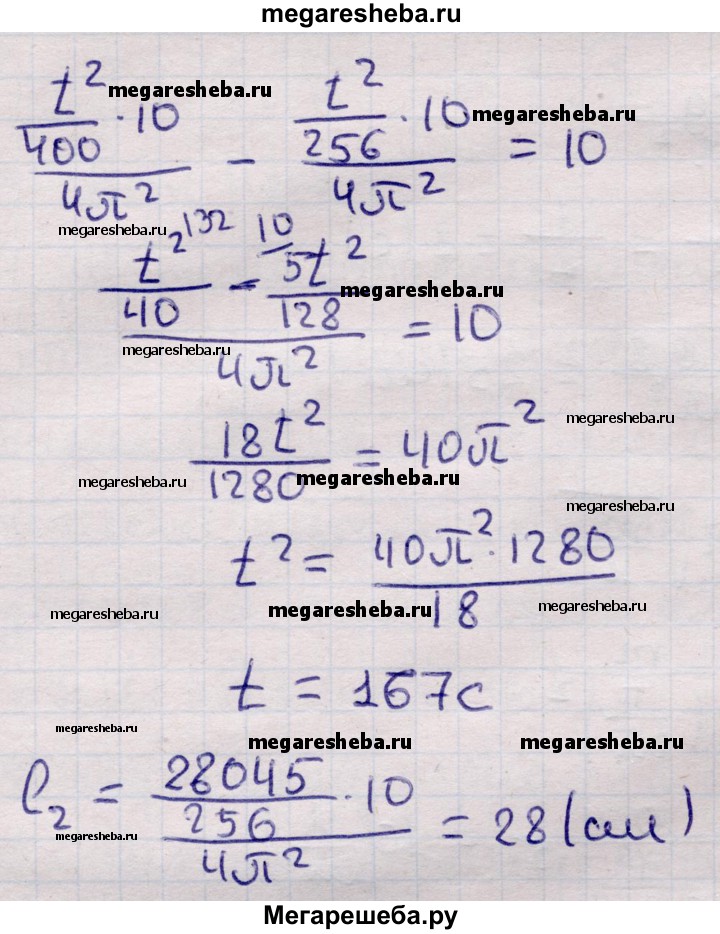 megaresheba.ru
t²/400 · 10 / 4π² - t²/256 · 10 / 4π² = 10
megaresheba.ru
megaresheba.ru
megaresheba.ru
t² ³² / 40 - ¹⁰ 5t² / 128 / 4π² = 10
megaresheba.ru
megaresheba.ru
18t² / 1280 = 40π²
megaresheba.ru
megaresheba.ru
megaresheba.ru
megaresheba.ru
t² = 40π² · 1280 / 18
megaresheba.ru
megaresheba.ru
megaresheba.ru
t = 167с
megaresheba.ru
megaresheba.ru
megaresheba.ru
l₂ = 28045/256 · 10 / 4π² = 28 (см)
megaresheba.ru
Мегарешеба.ру